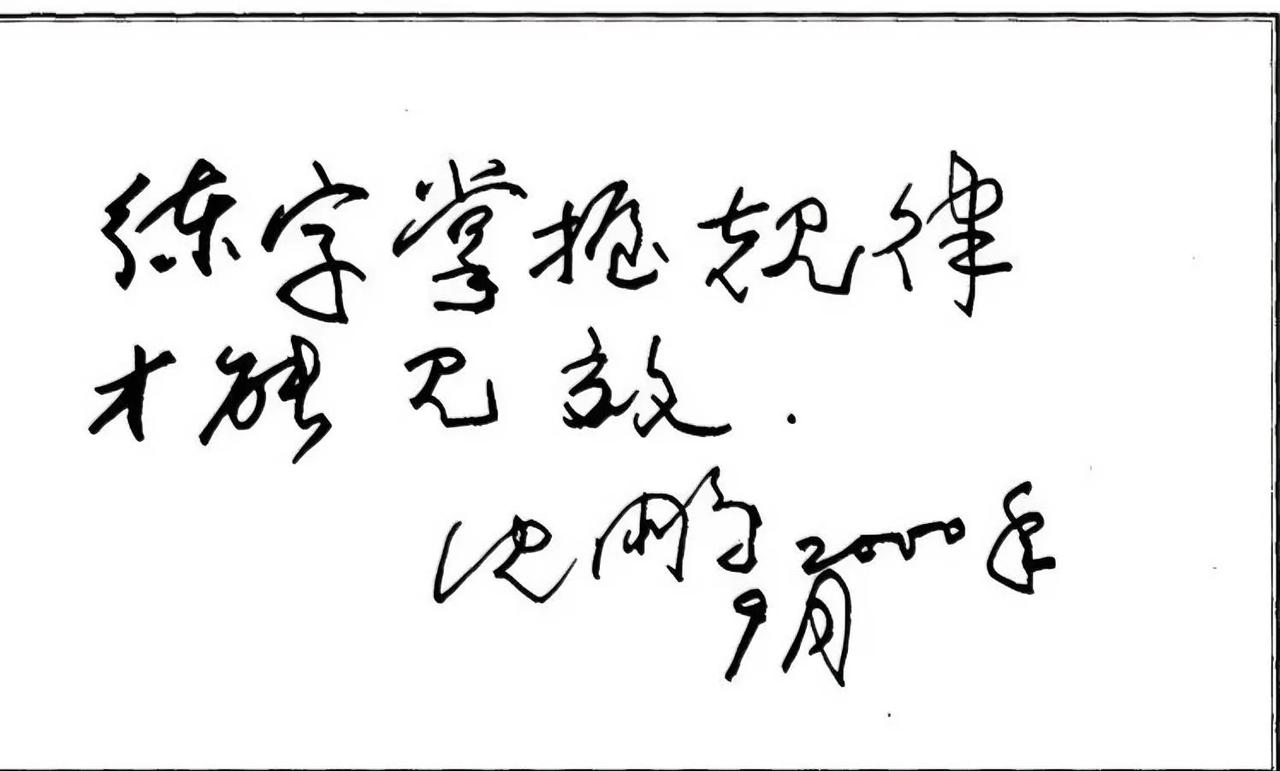 练字掌握规律
才能见效.
沈鹏2000年
9月